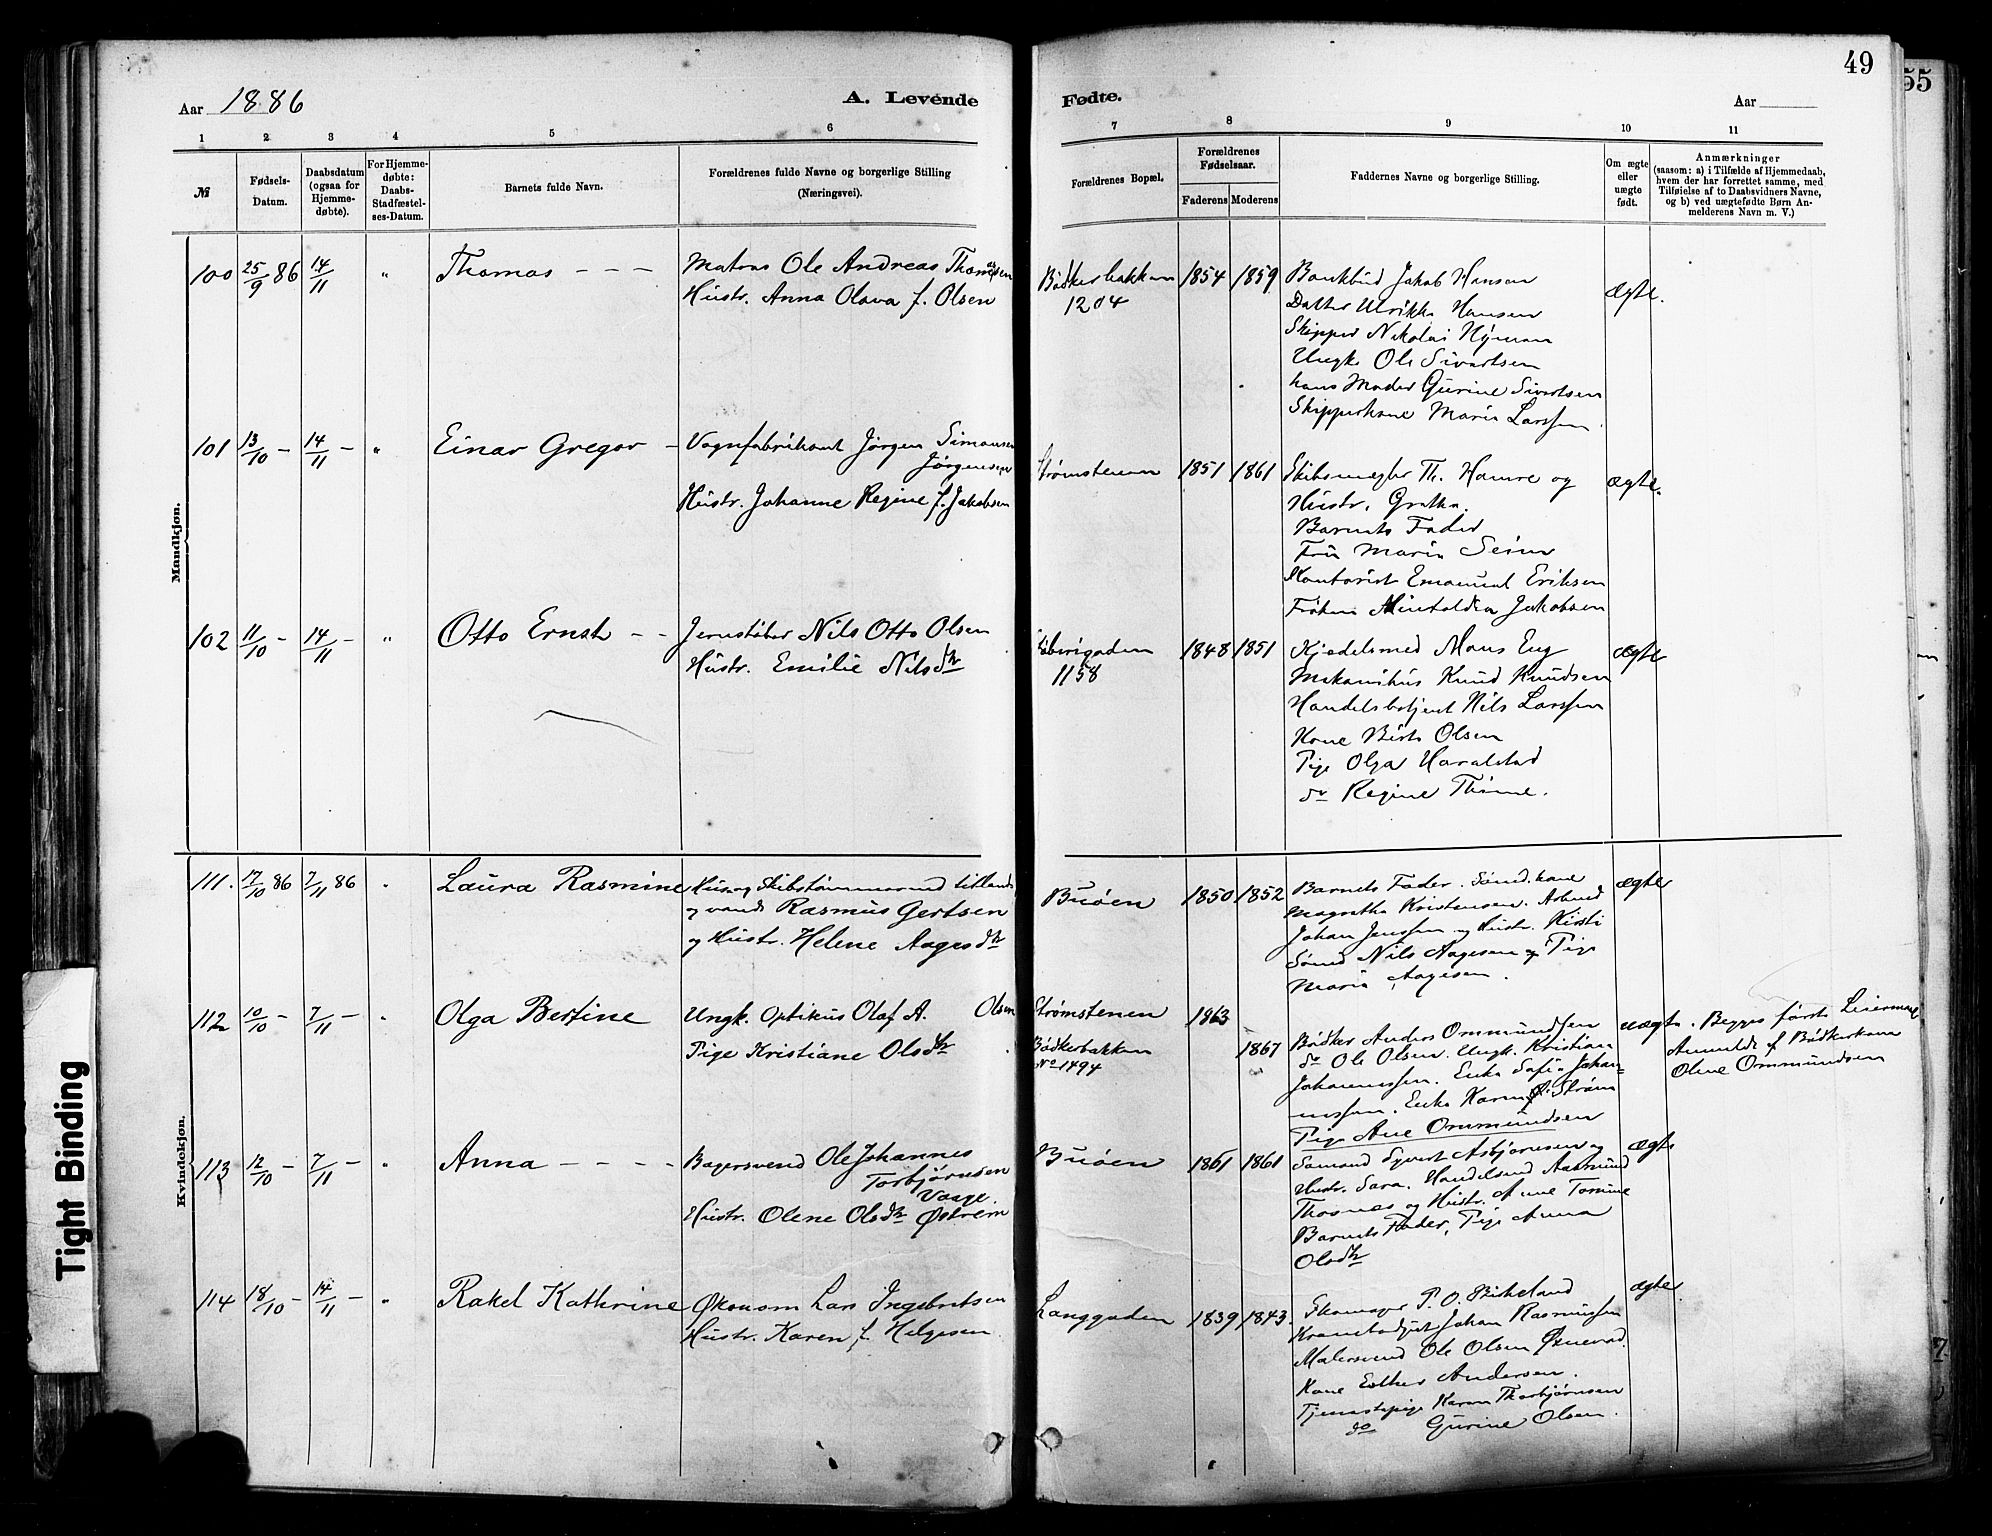 49
55
Aar 1886
A. Levende
Fødte.
Aar
1 2 3 4 5 6 7 8 9 10 11
№
Fødsels-Datum.
Daabsdatum (ogsaa for Hjemme-døbte).
For Hjemme-døbte: Daabs-Stadfæstel-ses-Datum.
Barnets fulde Navn.
Forældrenes fulde Navne og borgerlige Stilling (Næringsvei).
Forældrenes Bopæl.
Forældrenes Fødselsaar.
Faderens Moderens
Faddernes Navne og borgerlige Stilling.
Om ægte eller uægte født.
Anmærkninger
(saasom: a) i Tilfælde af Hjemmedaab,
hvem der har forrettet samme, med
Tilføielse af to Daabsvidners Navne,
og b) ved uægtefødte Børn An-
melderens Navn m. V.)
Mandkjøn.
100 25/9 86 14/11 „ Thomas - - -
Matros Ole Andreas Thomassen
Hustr. Anna Olava f. Olsen
Bødkerbakken
1204
1854 1859
Bankbud Jakob Hansen
Datter Ulrikke Hansen
Skipper Nikolai Nyman
Ungk Ole Sivertsen
hans Moder Gurine Sivertsen
Skipperkone Maria Larssen.
ægte.
101 13/10 - 14/11 - „ Einar Gregor -
Vognfabrikant Jørgen Simonsen
Jørgensen
Hustr. Johanne Regine f. Jakobsen
Strømstenen
1851 1861
Skibsmægler Th. Hamre og
Hustr. Grethe.
Barnets Fader
Fru Maria
Kontorist Emanuel Eriksen
Frøken Jakobsen
ægte.
102 11/10 - 14/11 - „ Otto Ernst - -
Jernstøber Nils Otto Olsen
Hustr. Emilie Nilsdtr
1158
1848 1851
Kjedelsmed Mons Eug
Mekanikus Knud Knudsen
Handelsbetjent Nils Larssen
Kone Olsen
Pige Olga Haralstad
do Regine Thime.
ægte
Kvindekjøn.
111. 17/10 86 7/11 86 „ Laura Rasmine
Husm. og Skibstømmermand
Rasmus Gertsen
og Hustr. Helene Aagesdtr
Buøen
1850 1852
Barnets Fader. Sømd. kone
Magrethe Kristensen. Arbmd
Johan Jenssen og Hustr. Kirsti
Sømd Nils Aagesen og Pige
Maria Aagesen.
ægte
112 10/10 - 7/11 - „ Olga Bertine
Ungk. Optikus Olaf A. Olsen
Pige Kristiane Olsdtr
Strømstenen
Bødkerbakken
No 1494
1863
1867
Bødker Anders Ommundsen
do Ole Olsen. Ungk. Kristian
Johannessen. Enke Sofie Johan-
nessen. Enke Karen Strøm
Pige Ane Ommundsen
uægte. Begges første Leiermaal
Anmeldt af Bødkerkone
Olene Ommundsen
113 12/10 - 7/11 - „ Anna - - - -
Bagersvend Ole Johannes
Torbjørnsen
Vaage.
Hustr. Olene Olsdtr Østrem
Buøen
1861 1861
Sømand Syvert Asbjørnsen og
Hustr. Sara. Handelsmd Aanmund
Thosnes og Hustr. Anne Tomine
Barnets Fader, Pige Anna
Olsdtr
ægte
114 18/10 - 14/11 - „ Rakel Kathrine
Økonom Lars Ingebritsen
Hustr. Karen f. Helgesen
Langgaden
1839 1843.
Skomager P. O. Birkeland
Johan Rasmussen
Malersvend Ole Olsen
Kone Esther Andersen.
Tjenestepige Karen Thorbjørnsen
do Gurine Olsen.
ægte
Tight Binding